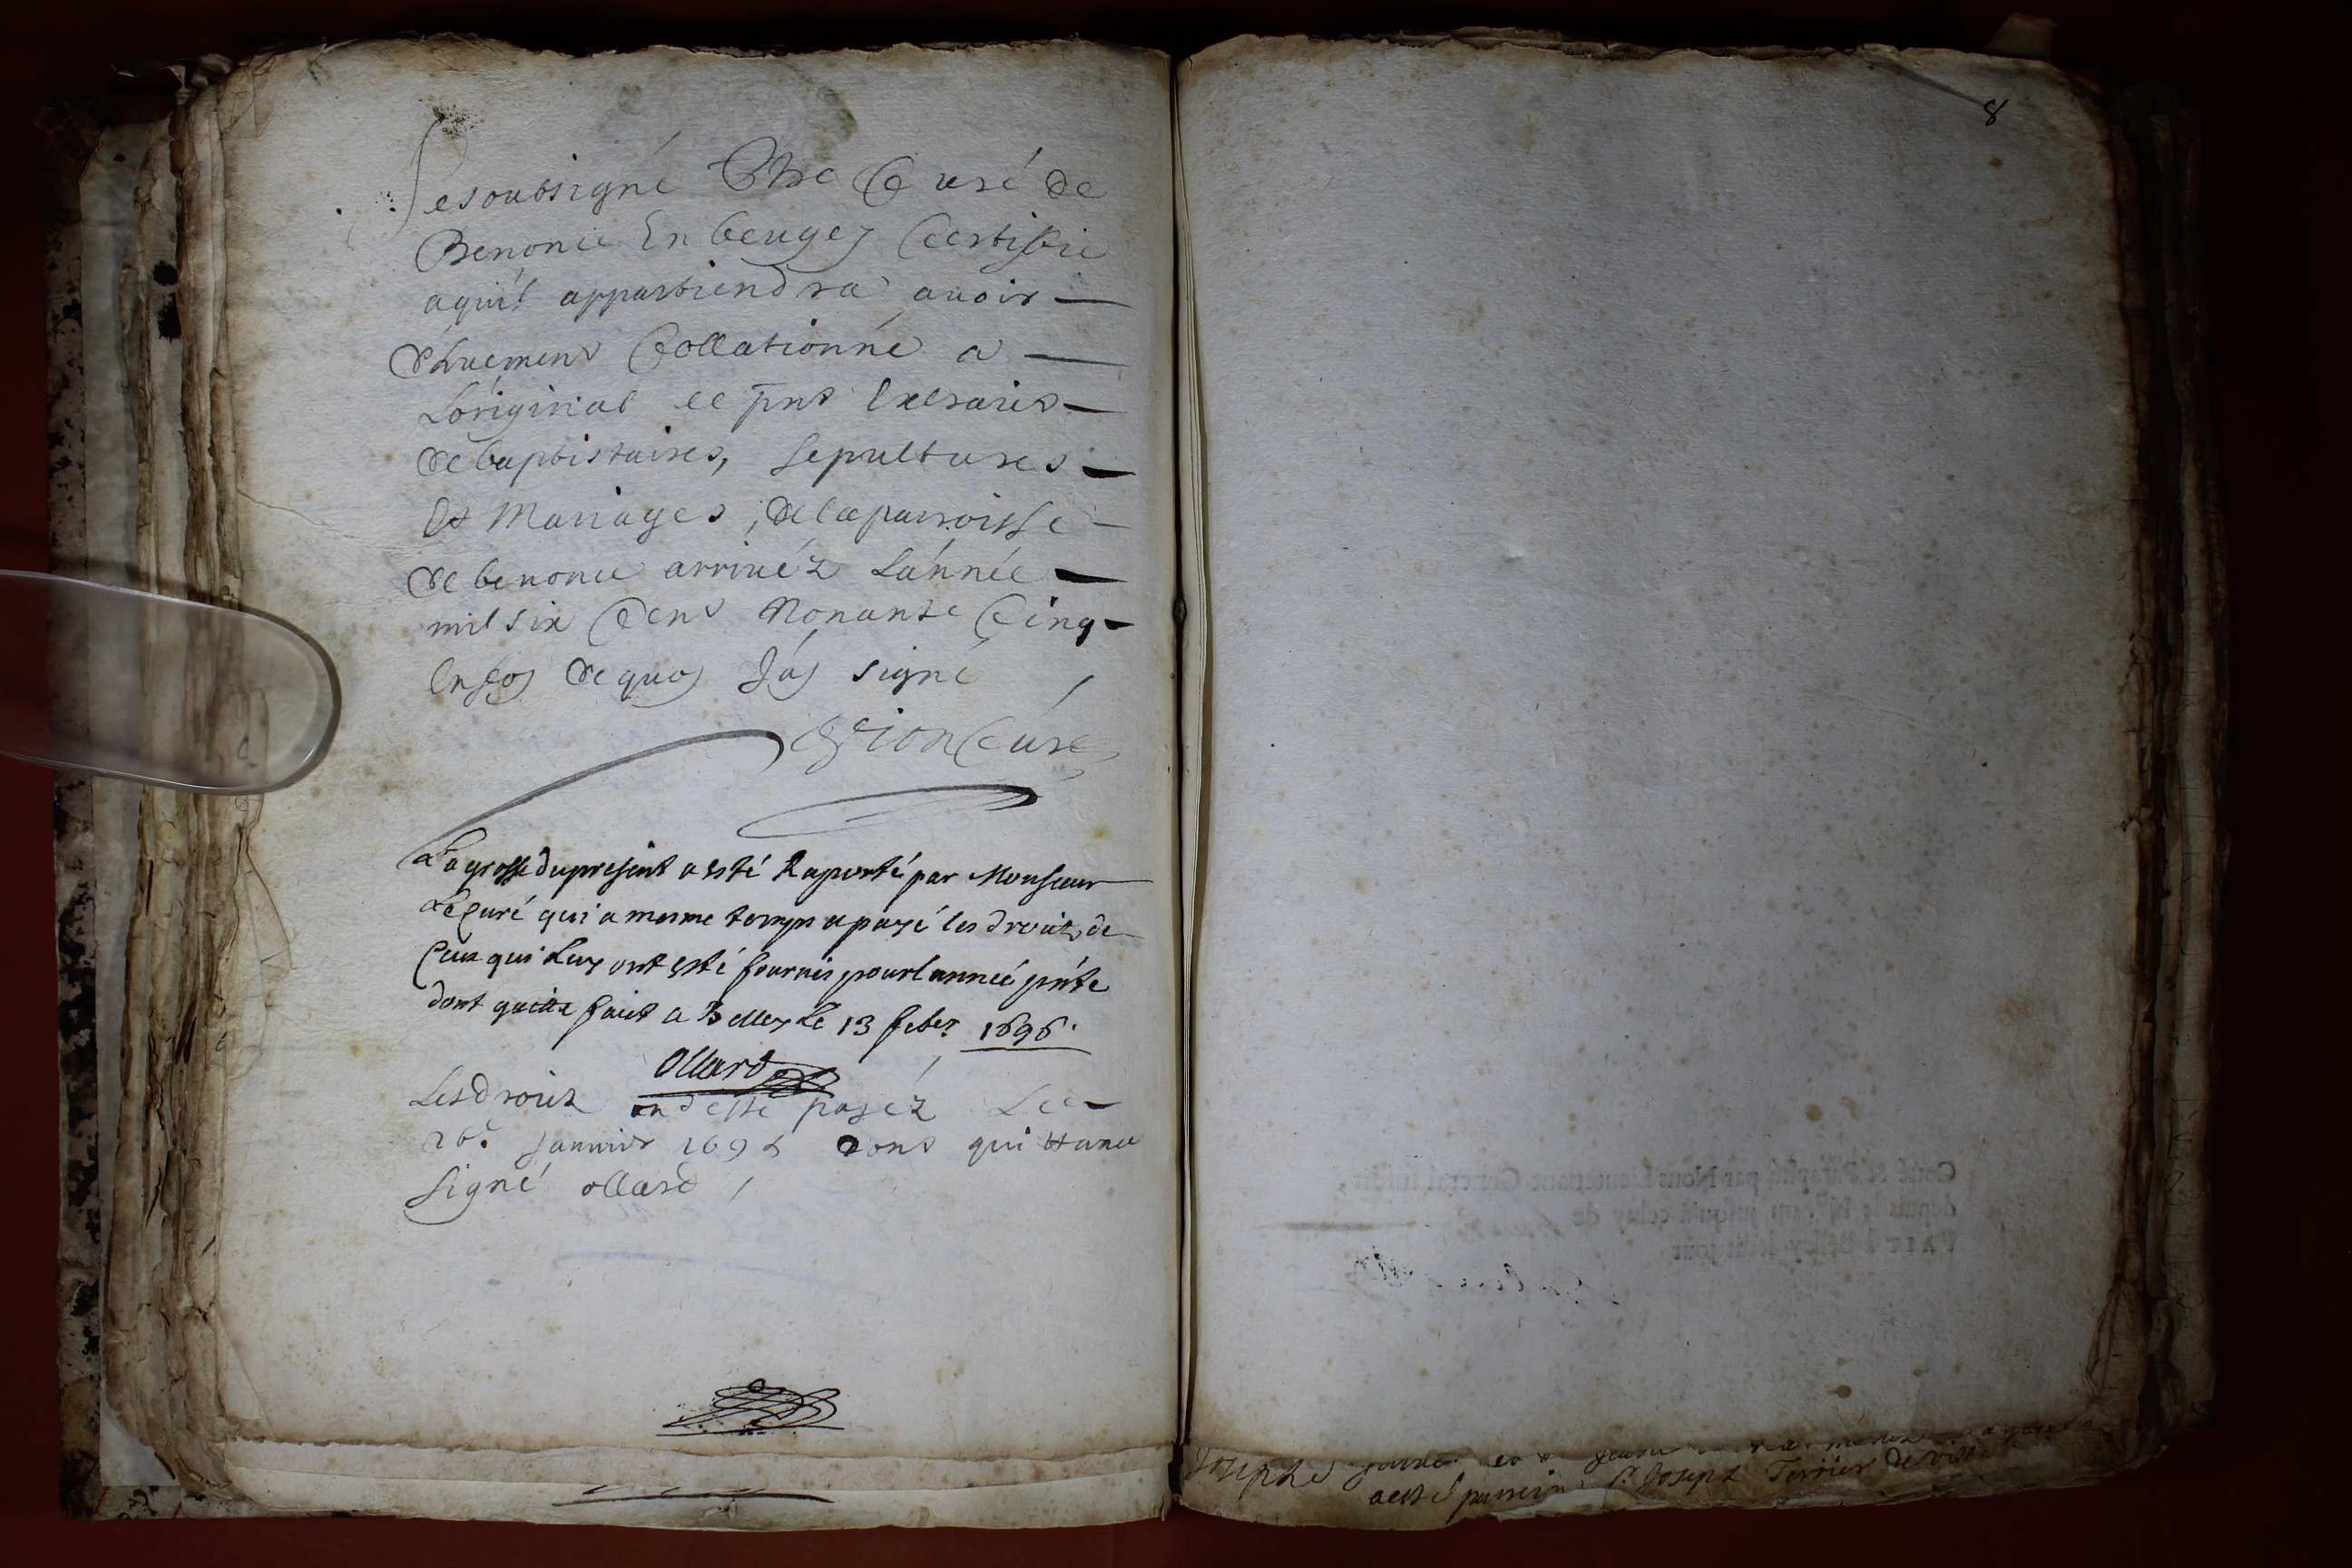 Je soubsigné Pbre Curé de
Benonce En beugey Certiffie
aquil appartiendra auoir
dhuement Collationné a
Loriginal le pnt Extraict
de baptistaires, sepultures
Et Mariages, de la parroisse
de benonce arriuéz Lannée
mil six Cent Nonante Cinq
En foy de quoy Jáy signé
Curé
La grosse du present a esté Raporté par Monsieur
Le Curé qui a mesme temps a payé les droits de
Ceux qui Luy ont esté fournis pour lannée pnte
dont quitte faict a Belley Le 13 feber 1696.
Ollard
Les droict ont esté payéz Le
26e Januier 1695 dont quittance
signé ollard
8
Cotté & Paraphé par Nous Lieutenant General susdit,
depuis le jusqu'à celuy de
FAIT à Belley ledit jour
Joseph
a esté parrein Sr. Joseph Terrier de